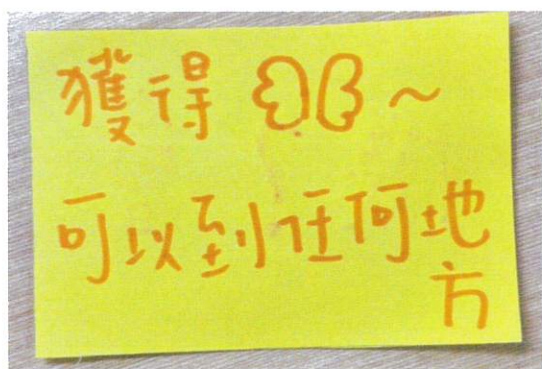 獲得 ~
可以到任何地
方